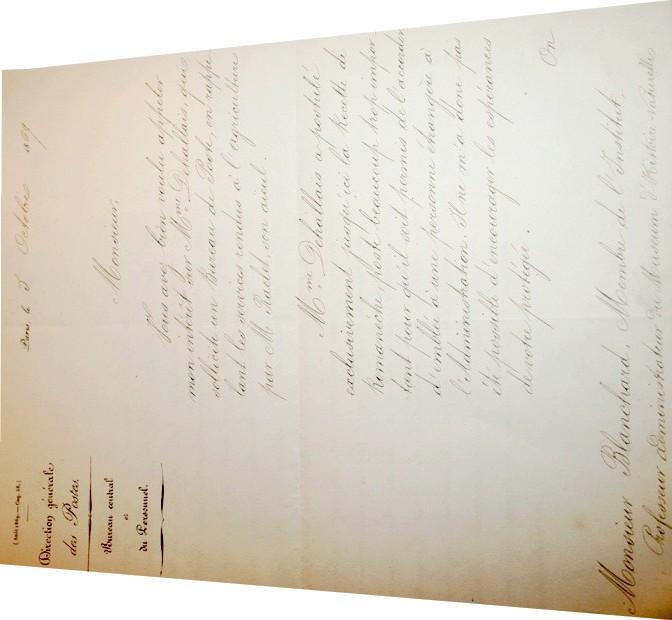 (Août 1869.—Cog. 58.)
Direction générale
des Postes.
Bureau central
et
du Personnel.
Paris, le 5 Octobre 1869
Monsieur,
Vous avez bien voulu appeler
mon intérêt sur Mme Dehallais, qui
sollicite un Bureau de Poste, en rappe-
lant les services rendus à l'agriculture
par Mr Raclet, son aïeul.
Mme Dehallais a postulé
exclusivement jusqu'ici la Recette de
Romanèche. Poste beaucoup trop impor-
tant pour qu'il soit permis de l'accorder
d'emblée à une personne étrangère à
l'Administration. Il ne m'a donc pas
été possible d'encourager les espérances
de votre protégée.
On
Monsieur Blanchard, Membre de l'Institut,
Professeur administrateur du Muséum d'Histoire naturelle